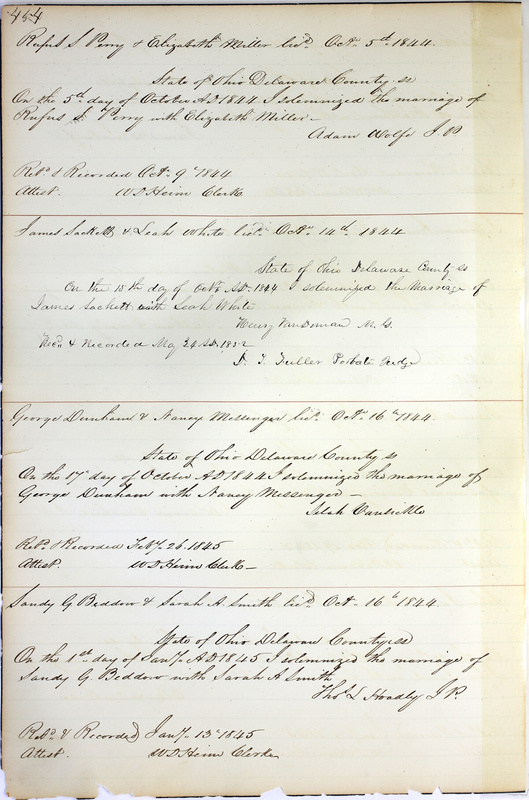 454
Rufus S Perry & Elizabeth Miller licd. Octr. 5th. 1844.
State of Ohio Delaware County ss
On the 5th day of October AD 1844 I solemnized the marriage of
Rufus S. Perry with Elizabeth Miller —
Adam Wolfe J P
Recd. & Recorded Octr. 9th 1844
Attest. W D Heim Clerk
James Sackett & Leah White licd. Octr. 14th. 1844
State of Ohio Delaware County ss
On the 15th day of Octr. AD. 1844 I solemnized the Marriage of
James Sackett with Leah White
Henry Vandeman M. G.
Recd. & Recorded May 24 AD. 1852
Fuller Probate Judge
George Dunham & Nancy Messenger licd. Octr. 16th 1844.
State of Ohio Delaware County ss
On the 17th day of October AD 1844 I solemnized the marriage of
George Dunham with Nancy Messenger —
Recd. & Recorded Feby. 26. 1845
Attest. W D Heim Clerk —
Sandy G Beddow & Sarah A. Smith licd. Octr. 16th 1844.
State of Ohio Delaware County ss
On the 1st. day of Jany. AD 1845 I solemnized the marriage of
Sandy G. Beddow with Sarah A Smith
Thos. L Hoadly J P.
Recd. & Recorded Jany. 13th 1845
Attest. W D Heim Clerk